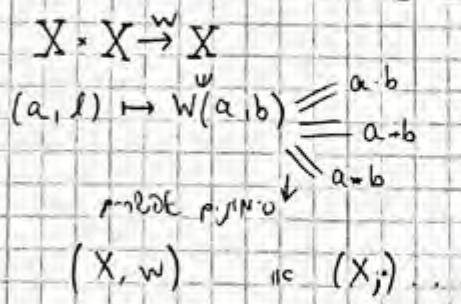 X × X →ʷ X
a·b
(a, b) ↦ W(a,b) a+b
a*b
סימונים אפשריים
(X, w) או (X,·) ...